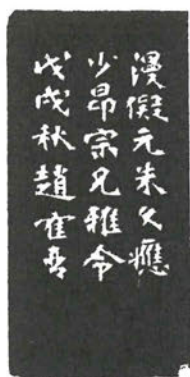 漫儗元朱文應
少昂宗兄雅令
戊戌秋趙隺琴